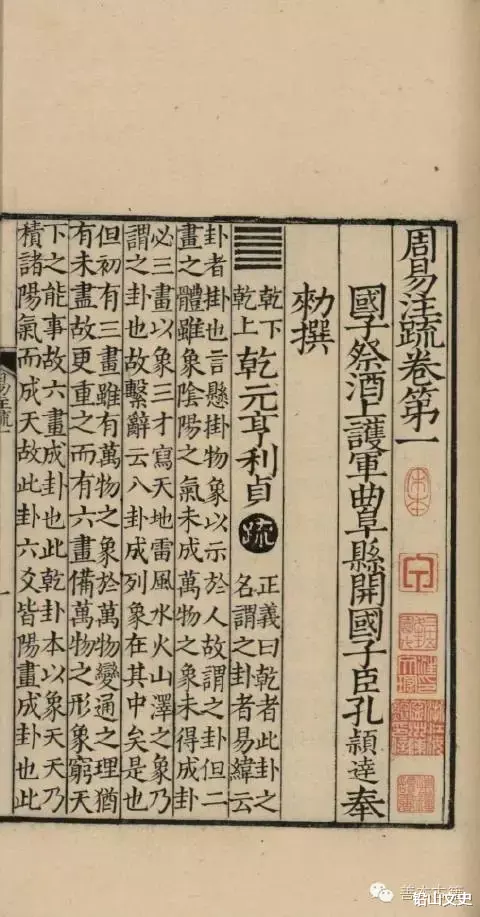 周易注疏卷第一
國子祭酒上護軍曲阜縣開國子臣孔穎達奉
勑撰
乾下
乾上
乾元亨利貞
疏
正義曰乾者此卦之
名謂之卦者易緯云
卦者掛也言懸掛物象以示於人故謂之卦但二
畫之體雖象陰陽之氣未成萬物之象未得成卦
必三畫以象三才寫天地雷風水火山澤之象乃
謂之卦也故繫辭云八卦成列象在其中矣是也
但初有三畫雖有萬物之象於萬物變通之理猶
有未盡故更重之而有六畫備萬物之形象窮天
下之能事故六畫成卦也此乾卦本以象天天乃
積諸陽氣而成天故此卦六爻皆陽畫成卦也此
易注疏一
宋本
铅山文史